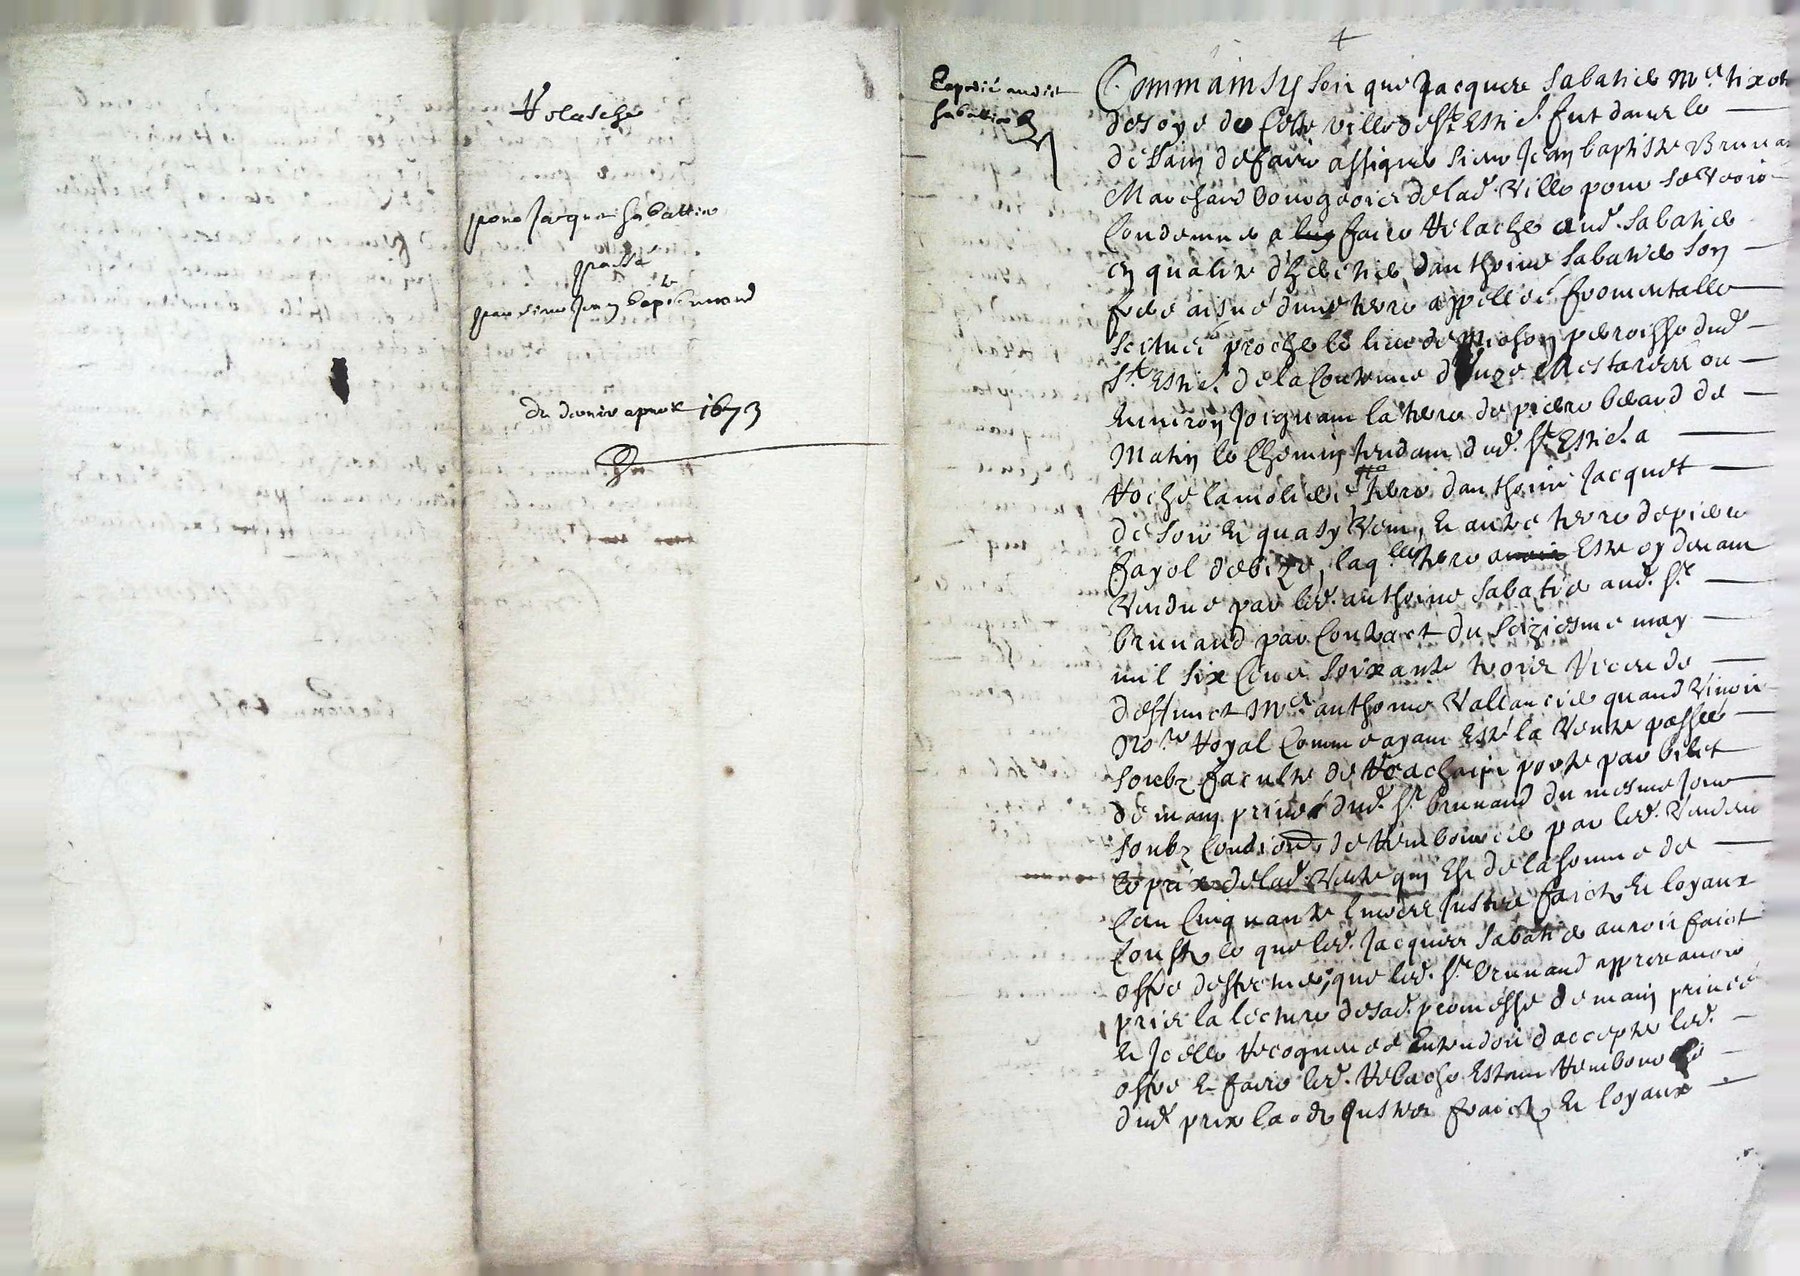 Relasche
pour Jacques Sabattier
passé
par sieur Jean bapte brunand
du dernier apvril 1673
4
Expedié audict
Sabattier
Comm'ainsy soit que Jacques Sabatier Me tixot
de soye de Ceste ville de St Estie. fut dans le
dessain de faire assigner sieur Jean baptiste Brunan
Marchand bourgeois de lad. Ville pour se veoir
Condemner a luy faire Relache aud. Sabatier
en qualité d'heritier d'anthoine Sabatier son
frere aisné d'une terre appellée fromentalle
scituée proche le lieu de parroisse dud.
St Estie. de la Contenue d'unze Mestairées ou
environ Joignant la terre de pierre beard de
Matin le Chemin tendant dud. St Estie. a
Roche la moliere terre d'anthoine Jacquet
de soir et quasy vent, et autre terre de pierre
fayol de bize, laqlle terre avoit Esté cy devant
Vendue par led. anthoine Sabatier aud. Sr
brunand par Contract du seiziesme may
mil six Cens soixante trois receu de
deffunct Me anthoine Vallancier quand vivoit
Nore Royal Comme ayant Esté la Vente passée
soubz faculté de Reachapt porté par bilet
de main privée dud. Sr brunand du mesme Jour
soubz Condition de Rembourcer par led. Vendeur
le prix de lad. Vente qui Est de la somme de
Cent Cinquante livres Justes fraictz et loyaux
Coustz ce que led. Jacques Sabatier auroit faict
offre d'effectuer, que led. Sr brunand appres avoir
pris la lecture de sad. promesse de main privée
et Jcelle Recogneue entendoit d'accepter led.
offre et faire led. Relache Estant Rembourcé
dud. prix Justes fraictz et loyaux